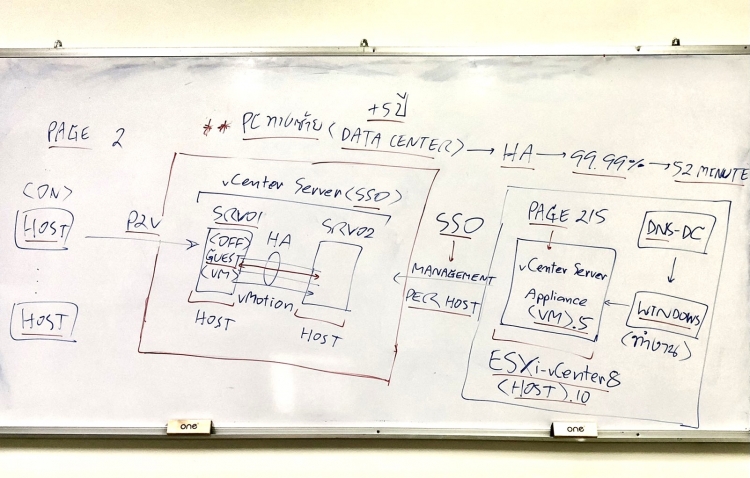 +5ปี
PAGE 2
** PC ทางซ้าย (DATA CENTER) → HA → 99.99% → 52 MINUTE
<ON>
HOST
HOST
P2V
vCenter Server (SSO)
SRV01
HA
SRV02
<OFF>
GUEST
(VM)
vMotion
HOST
HOST
SSO
MANAGEMENT
PER HOST
PAGE 215
DNS-DC
vCenter Server
Appliance
(VM).5
WINDOWS
ESXi-vCenter8
(HOST).10
one
one